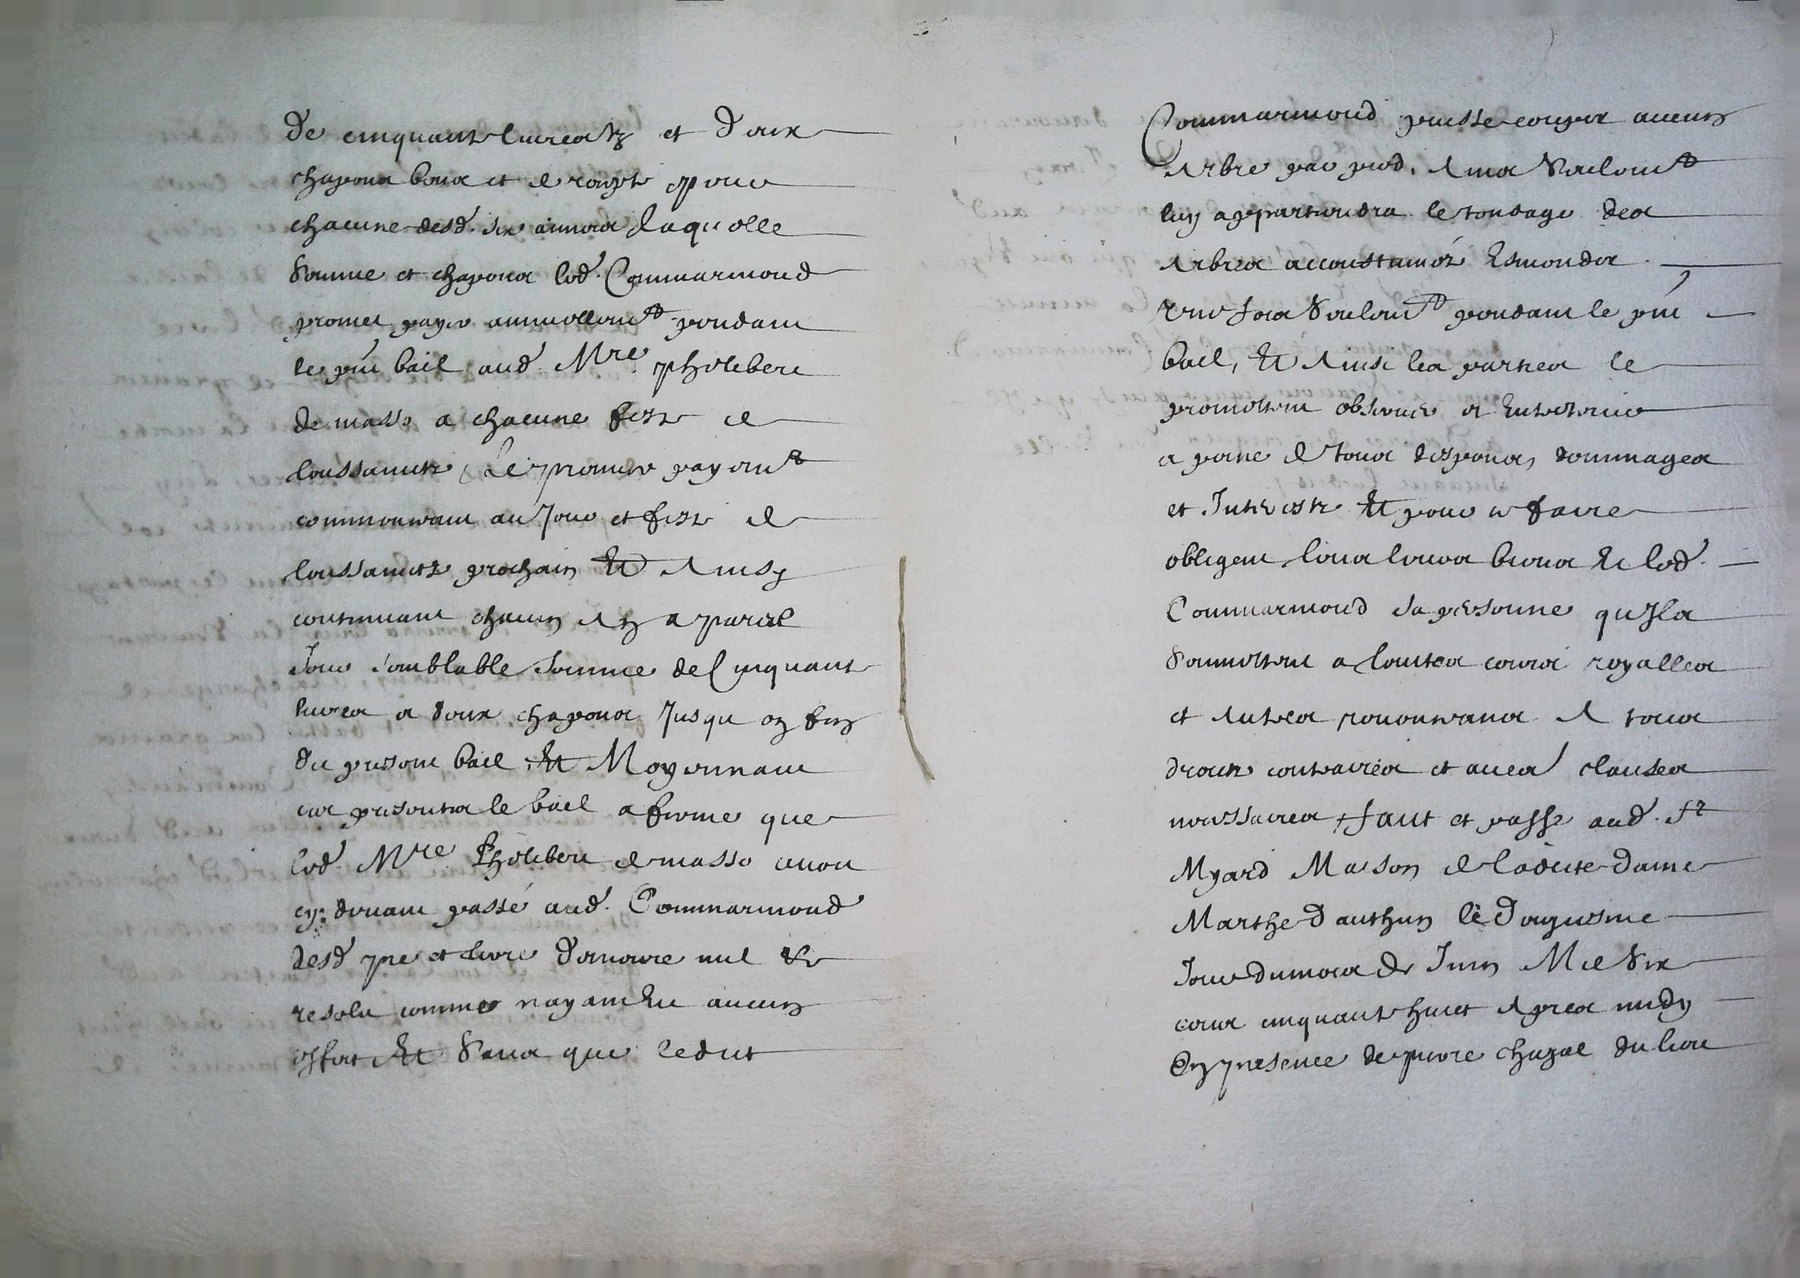 de cinquante livres tz et deux
chapons bons et de recepte pour
chacune desd. six années laquelle
somme et chapons led. Commarmond
promet payer annuellemt pendant
le pnt bail aud. Mre Philebert
de masso a chacune feste de
toussaintz, le premier payemt
commenceant au Jour et feste de
toussaintz prochain Et Ainsy
continuant chacun An a pareil
Jour semblable somme de Cinquante
livres et deux chapons Jusqu en fin
du present bail, Et Moyennant
ces presentes le bail a ferme que
led. Mre Philebert de masso avoit
cy devant passé aud. Commarmond
desd. pre et terre demeure nul et
resolu comme nayant Eu aucun
effect Et sans que ledict
Commarmond puisse couper aucun
Arbre par pied, Ains seulemt
luy apartiendra le tondage des
Arbres accoustumez Esmonder
une fois seulemt pendant le pnt
bail, Et Ainsi les parties le
promettent observer et Entretenir
a peine de tous despens, dommages
et Interestz Et pour ce faire
obligent tous leurs biens Et led.
Commarmond sa personne quJls
soumettent a toutes cours royalles
et Autres renonceans A tous
droictz contraires et avec clauses
necessaires, faict et passé aud. St
Myard Maison de ladicte dame
Marthe dauthun le douziesme
Jour du mois de Juin Mil six
cens cinquante huict Apres midy
En presence de pierre chazal du lieu